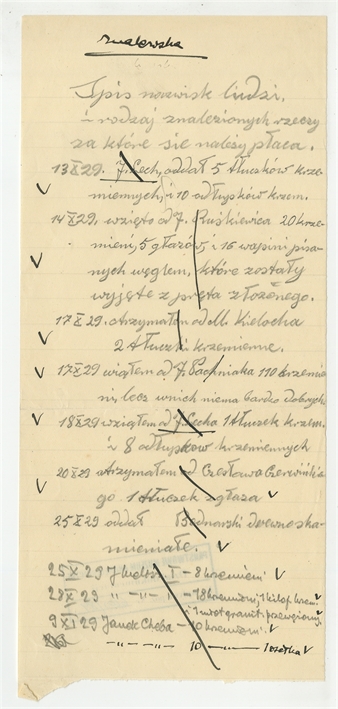 Spis nazwisk ludzi,
i rodzaj znalezionych rzeczy
za które się należy płaca.
13 X 29. J. Lech, oddał 5 tłuczków krze-
miennych, i 10 odłupków krzem.
14 X 29. wzięto od J. Ruśkiewicza 20 krze-
mieni, 5 głazów, i 16 wapini pisa-
nych węglem, które zostały
wyjęte z pręta złożonego.
17 X 29. otrzymałem od Kielocha
2 tłuczki krzemienne.
17 X 29 wziąłem od J. Pachniaka 110 krzemie
ni, lecz w nich niema bardzo dobrych.
18 X 29 wziąłem od J. Lecha 1 tłuczek krzem.
i 8 odłupków krzemiennych
20 X 29 otrzymałem od Czesława Czerwińskie
go 1 tłuczek z głaza
25 X 29 oddał Bednarski drewno ska-
mieniałe.
25 X 29 J - 8 krzemieni
28 X 29 -"- -"- I - 18 krzemieni, 1 kilof. krzem.
9 XI 29 Janek Cheba - 10 krzemieni
-"- -"- -"- 10 -"- 1 osełka